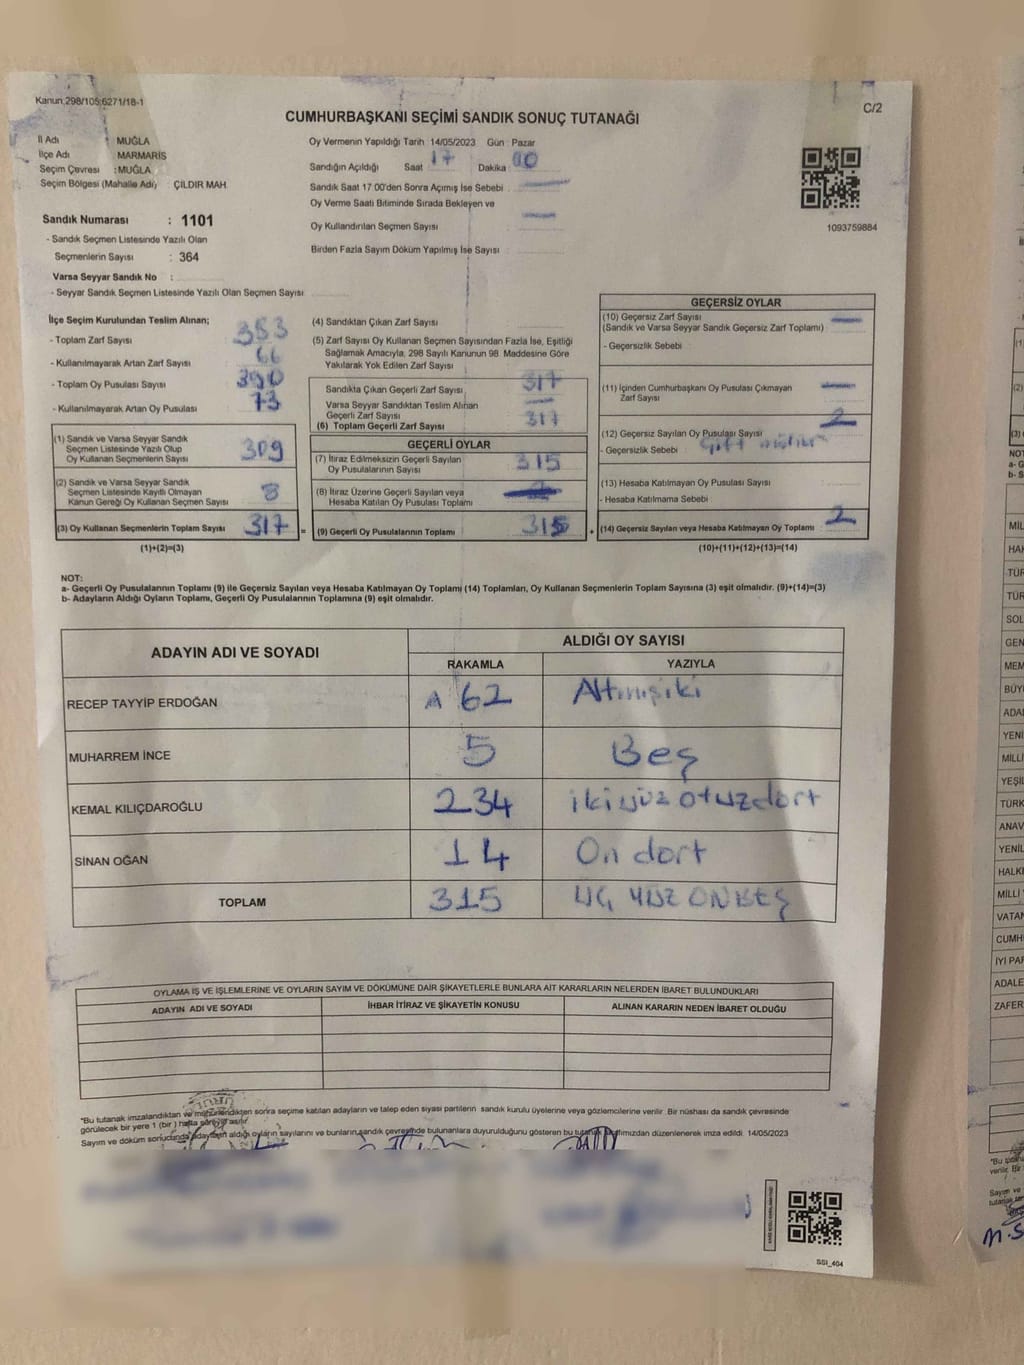 Kanun:298/105;6271/18-1
C/2
CUMHURBAŞKANI SEÇİMİ SANDIK SONUÇ TUTANAĞI
İl Adı : MUĞLA
İlçe Adı MARMARİS
Seçim Çevresi : MUĞLA
Seçim Bölgesi (Mahalle Adı) : ÇILDIR MAH.
Oy Vermenin Yapıldığı Tarih 14/05/2023 Gün : Pazar
Sandığın Açıldığı Saat 17 Dakika 00
Sandık Saat 17 00'den Sonra Açımış İse Sebebi
Oy Verme Saati Bitiminde Sırada Bekleyen ve
Oy Kullandırılan Seçmen Sayısı
Birden Fazla Sayım Döküm Yapılmış İse Sayısı
1093759884
Sandık Numarası : 1101
- Sandık Seçmen Listesinde Yazılı Olan
Seçmenlerin Sayısı : 364
Varsa Seyyar Sandık No :
- Seyyar Sandık Seçmen Listesinde Yazılı Olan Seçmen Sayısı
İlçe Seçim Kurulundan Teslim Alınan;
- Toplam Zarf Sayısı 383
- Kullanılmayarak Artan Zarf Sayısı 66
- Toplam Oy Pusulası Sayısı 390
- Kullanılmayarak Artan Oy Pusulası 73
(1) Sandık ve Varsa Seyyar Sandık
Seçmen Listesinde Yazılı Olup
Oy Kullanan Seçmenlerin Sayısı 309
(2) Sandık ve Varsa Seyyar Sandık
Seçmen Listesinde Kayıtlı Olmayan
Kanun Gereği Oy Kullanan Seçmen Sayısı 8
(3) Oy Kullanan Seçmenlerin Toplam Sayısı 317 =
(1)+(2)=(3)
(4) Sandıktan Çıkan Zarf Sayısı
(5) Zarf Sayısı Oy Kullanan Seçmen Sayısından Fazla İse, Eşitliği
Sağlamak Amacıyla, 298 Sayılı Kanunun 98. Maddesine Göre
Yakılarak Yok Edilen Zarf Sayısı
Sandıkta Çıkan Geçerli Zarf Sayısı 317
Varsa Seyyar Sandıktan Teslim Alınan
Geçerli Zarf Sayısı
(6) Toplam Geçerli Zarf Sayısı 317
GEÇERLİ OYLAR
(7) İtiraz Edilmeksizin Geçerli Sayılan
Oy Pusulalarının Sayısı 315
(8) İtiraz Üzerine Geçerli Sayılan veya
Hesaba Katılan Oy Pusulası Toplamı
(9) Geçerli Oy Pusulalarının Toplamı 315 +
GEÇERSİZ OYLAR
(10) Geçersiz Zarf Sayısı
(Sandık ve Varsa Seyyar Sandık Geçersiz Zarf Toplamı)
- Geçersizlik Sebebi
(11) İçinden Cumhurbaşkanı Oy Pusulası Çıkmayan
Zarf Sayısı
(12) Geçersiz Sayılan Oy Pusulası Sayısı 2
- Geçersizlik Sebebi Çift
(13) Hesaba Katılmayan Oy Pusulası Sayısı
- Hesaba Katılmama Sebebi
(14) Geçersiz Sayılan veya Hesaba Katılmayan Oy Toplamı 2
(10)+(11)+(12)+(13)=(14)
NOT:
a- Geçerli Oy Pusulalarının Toplamı (9) ile Geçersiz Sayılan veya Hesaba Katılmayan Oy Toplamı (14) Toplamları, Oy Kullanan Seçmenlerin Toplam Sayısına (3) eşit olmalıdır. (9)+(14)=(3)
b- Adayların Aldığı Oyların Toplamı, Geçerli Oy Pusulalarının Toplamına (9) eşit olmalıdır.
ADAYIN ADI VE SOYADI ALDIĞI OY SAYISI
RAKAMLA YAZIYLA
RECEP TAYYİP ERDOĞAN 62 Altmışiki
MUHARREM İNCE 5 Beş
KEMAL KILIÇDAROĞLU 234 ikiyüz otuzdört
SİNAN OĞAN 14 On dört
TOPLAM 315 ÜÇ YÜZ ONBEŞ
OYLAMA İŞ VE İŞLEMLERİNE VE OYLARIN SAYIM VE DÖKÜMÜNE DAİR ŞİKAYETLERLE BUNLARA AİT KARARLARIN NELERDEN İBARET BULUNDUKLARI
ADAYIN ADI VE SOYADI İHBAR İTİRAZ VE ŞİKAYETİN KONUSU ALINAN KARARIN NEDEN İBARET OLDUĞU
"Bu tutanak imzalandıktan ve mühürlendikten sonra seçime katılan adayların ve talep eden siyasi partilerin sandık kurulu üyelerine veya gözlemcilerine verilir. Bir nüshası da sandık çevresinde
görülecek bir yere 1 (bir) hafta süreyle asılır.
Sayım ve döküm sonucunda adayların aldığı oyların sayılarını ve bunların sandık çevresinde bulunanlara duyurulduğunu gösteren bu tutanak tarafımızdan düzenlenerek imza edildi. 14/05/2023
SSI_404
MİL
HAK
TÜR
TÜR
SOL
GEN
MEM
BÜY
ADAL
YENİ
MİLLİ
YEŞİL
TÜRK
ANAV
YENİL
HALKI
MİLLİ
VATAN
CUMH
İYİ PAR
ADALE
ZAFER